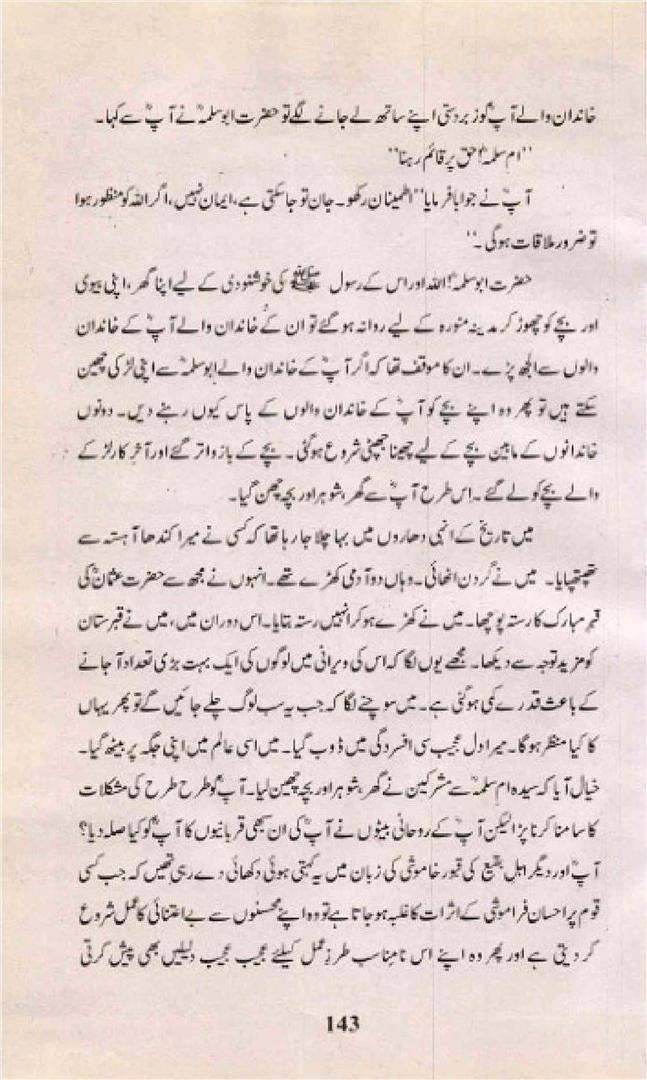 خاندان والے آپؓ کو زبردستی اپنے ساتھ لے جانے لگے تو حضرت ابو سلمہؓ نے آپؓ سے کہا۔
"ام سلمہؓ! حق پر قائم رہنا"
آپؓ نے جوابا فرمایا "اطمینان رکھو۔ جان تو جا سکتی ہے، ایمان نہیں، اگر اللہ کو منظور ہوا
تو ضرور ملاقات ہوگی۔"
حضرت ابو سلمہؓ! اللہ اور اس کے رسول ﷺ کی خوشنودی کے لیے اپنا گھر، اپنی بیوی
اور بچے کو چھوڑ کر مدینہ منورہ کے لیے روانہ ہو گئے تو ان کے خاندان والے آپؓ کے خاندان
والوں سے الجھ پڑے۔ ان کا موقف تھا کہ اگر آپؓ کے خاندان والے ابو سلمہؓ سے اپنی لڑکی چھین
سکتے ہیں تو پھر وہ اپنے بچے کو آپؓ کے خاندان والوں کے پاس کیوں رہنے دیں۔ دونوں
خاندانوں کے مابین بچے کے لیے چھینا جھپٹی شروع ہوگئی۔ بچے کے بازو اتر گئے اور آخر کار لڑکے
والے بچے کو لے گئے۔ اِس طرح آپؓ سے گھر، شوہر اور بچہ چھن گیا۔
میں تاریخ کے انہی دھاروں میں بہا چلا جا رہا تھا کہ کسی نے میرا کندھا آہستہ سے
تھپتھپایا۔ میں نے گردن اٹھائی۔ وہاں دو آدمی کھڑے تھے۔ انہوں نے مجھ سے حضرت عثمانؓ کی
قبرِ مبارک کا رستہ پوچھا۔ میں نے کھڑے ہو کر انہیں رستہ بتایا۔ اس دوران میں، میں نے قبرستان
کو مزید توجہ سے دیکھا۔ مجھے یوں لگا کہ اس کی ویرانی میں لوگوں کی ایک بہت بڑی تعداد آ جانے
کے باعث قدرے کمی ہوگئی ہے۔ میں سوچنے لگا کہ جب یہ سب لوگ چلے جائیں گے تو پھر یہاں
کا کیا منظر ہوگا۔ میرا دل عجیب سی افسردگی میں ڈوب گیا۔ میں اسی عالم میں اپنی جگہ پر بیٹھ گیا۔
خیال آیا کہ سیدہ ام سلمہؓ سے مشرکین نے گھر، شوہر اور بچہ چھین لیا۔ آپؓ کو طرح طرح کی مشکلات
کا سامنا کرنا پڑا لیکن آپؓ کے روحانی بیٹوں نے آپؓ کی ان سبھی قربانیوں کا آپؓ کو کیا صلہ دیا؟
آپؓ اور دیگر اہلِ بقیع کی قبور خاموشی کی زبان میں یہ کہتی ہوئی دکھائی دے رہی تھیں کہ جب کسی
قوم پر احسان فراموشی کے اثرات کا غلبہ ہو جاتا ہے تو وہ اپنے محسنوں سے بے اعتنائی کا عمل شروع
کر دیتی ہے اور پھر وہ اپنے اس نامناسب طرزِ عمل کیلئے عجیب عجیب دلیلیں بھی پیش کرتی
143